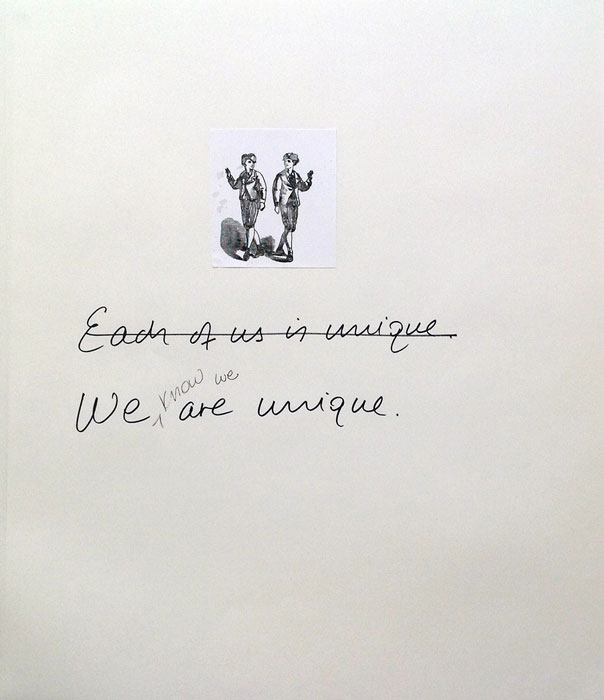 Each of us is unique.
know we
We are unique.